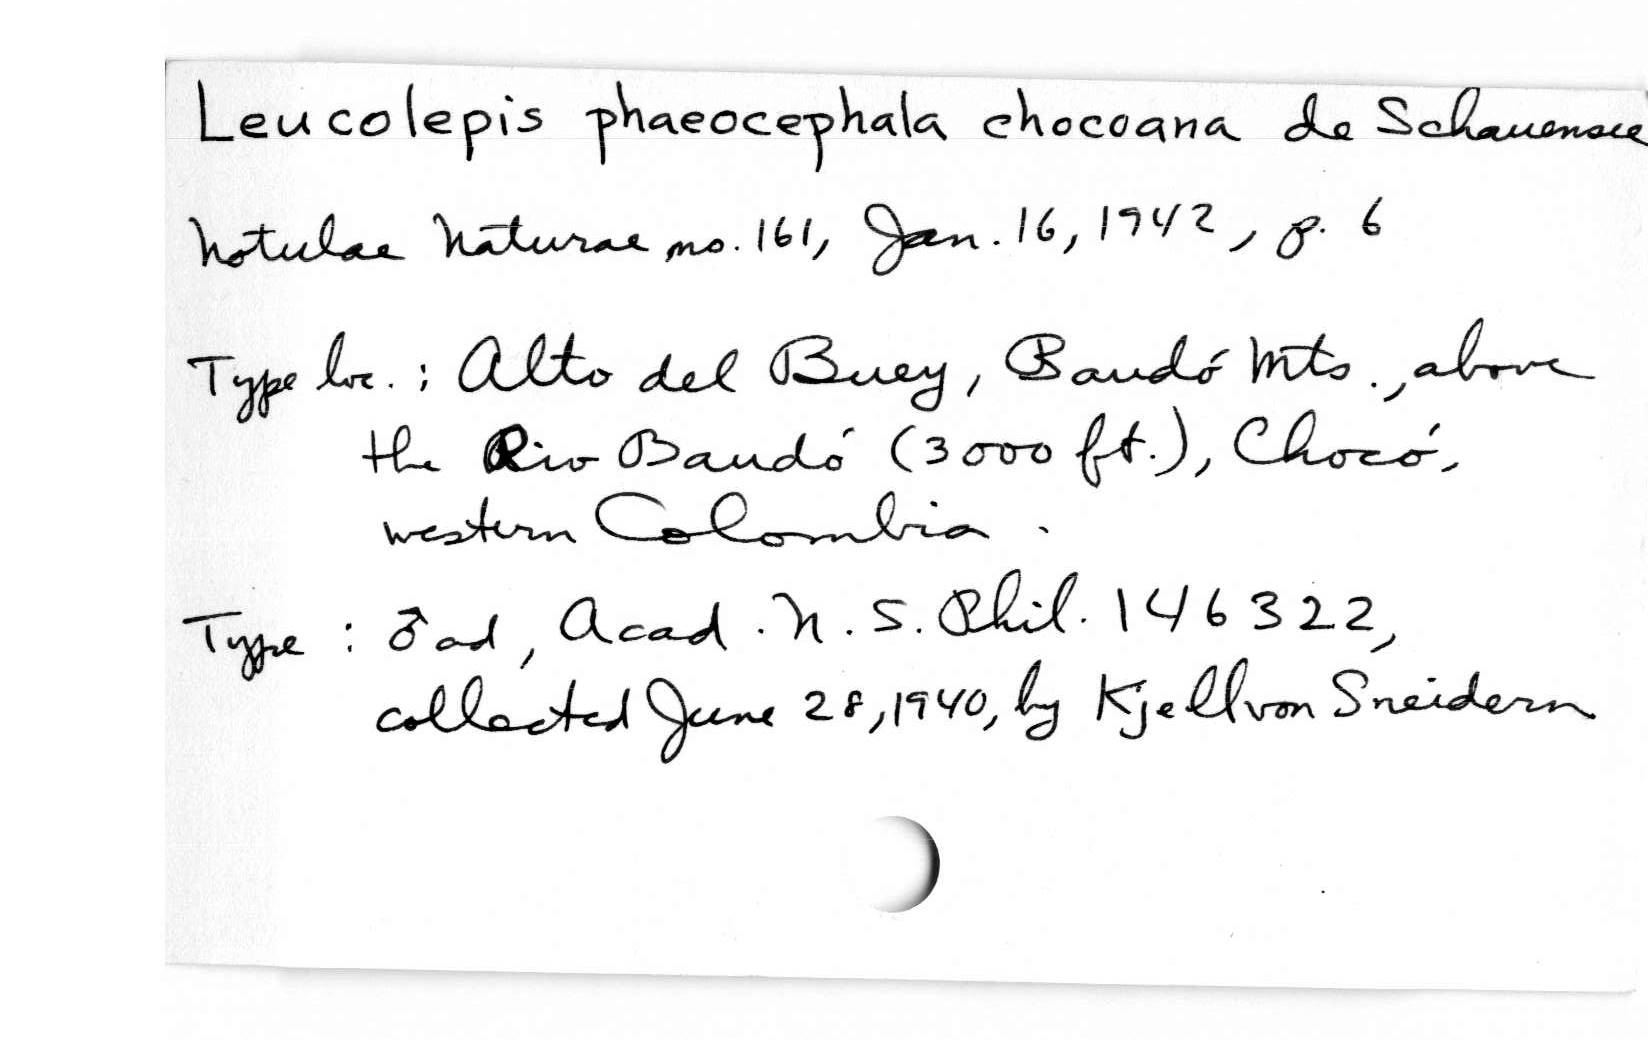 Leucolepis phaeocephala chocoana de Schauensee
Notulae Naturae no. 161, Jan. 16, 1942, p. 6
Type loc. : Alto del Buey, Baudó Mts., above
the Rio Baudó (3000 ft.), Chocó,
western Colombia.
Type : ♂ ad, Acad. N. S. Phil. 146322,
collected June 28, 1940, by Kjell von Sneidern